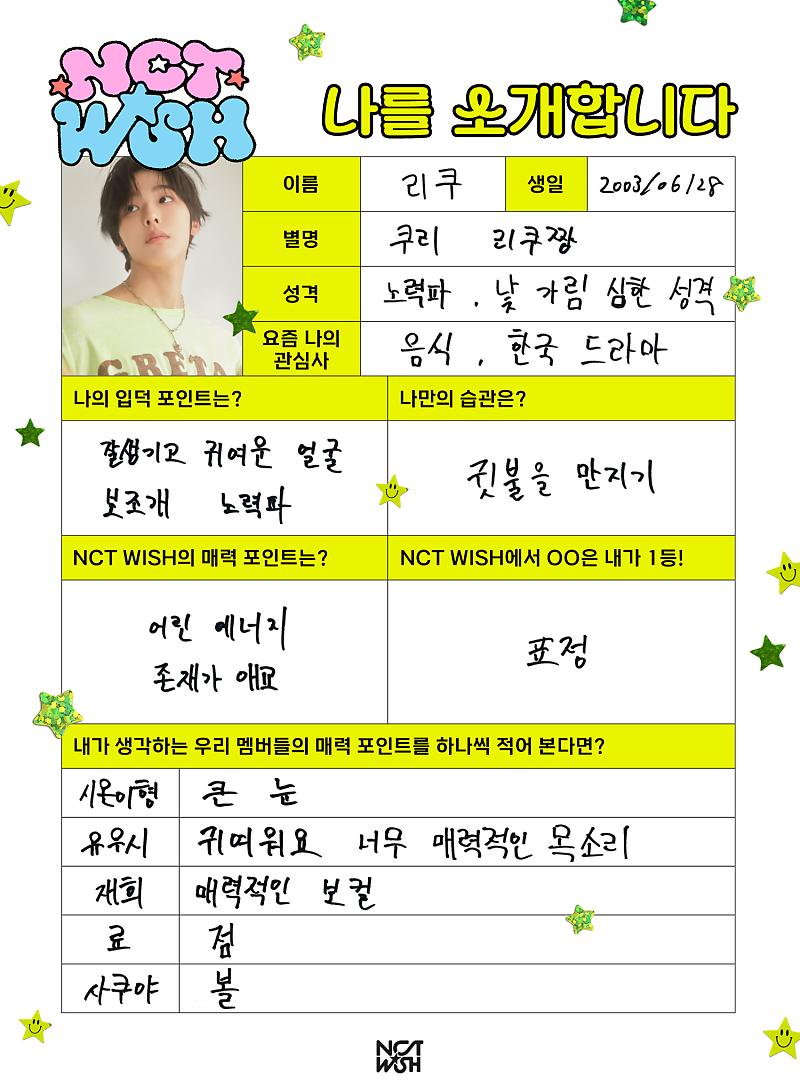 NCT WISH
나를 소개합니다
이름 리쿠 생일 2003/06/28
별명 쿠리 리쿠짱
성격 노력파 , 낯 가림 심한 성격
GRETA
요즘 나의 관심사 음식 , 한국 드라마
나의 입덕 포인트는?
잘생기고 귀여운 얼굴
보조개 노력파
나만의 습관은?
귓불을 만지기
NCT WISH의 매력 포인트는?
어린 에너지
존재가 애교
NCT WISH에서 OO은 내가 1등!
표정
내가 생각하는 우리 멤버들의 매력 포인트를 하나씩 적어 본다면?
시온이형 큰 눈
유우시 귀여워요 너무 매력적인 목소리
재희 매력적인 보컬
료 점
사쿠야 볼
NCT WISH